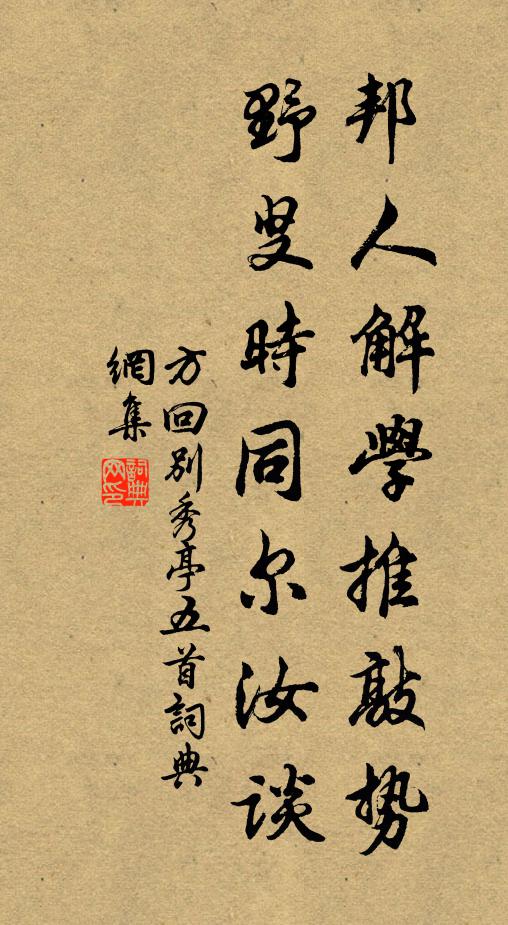 邦人解學推敲势
野叟時同尔汝談
方回别秀亭五首詞典
網集
詞典網印